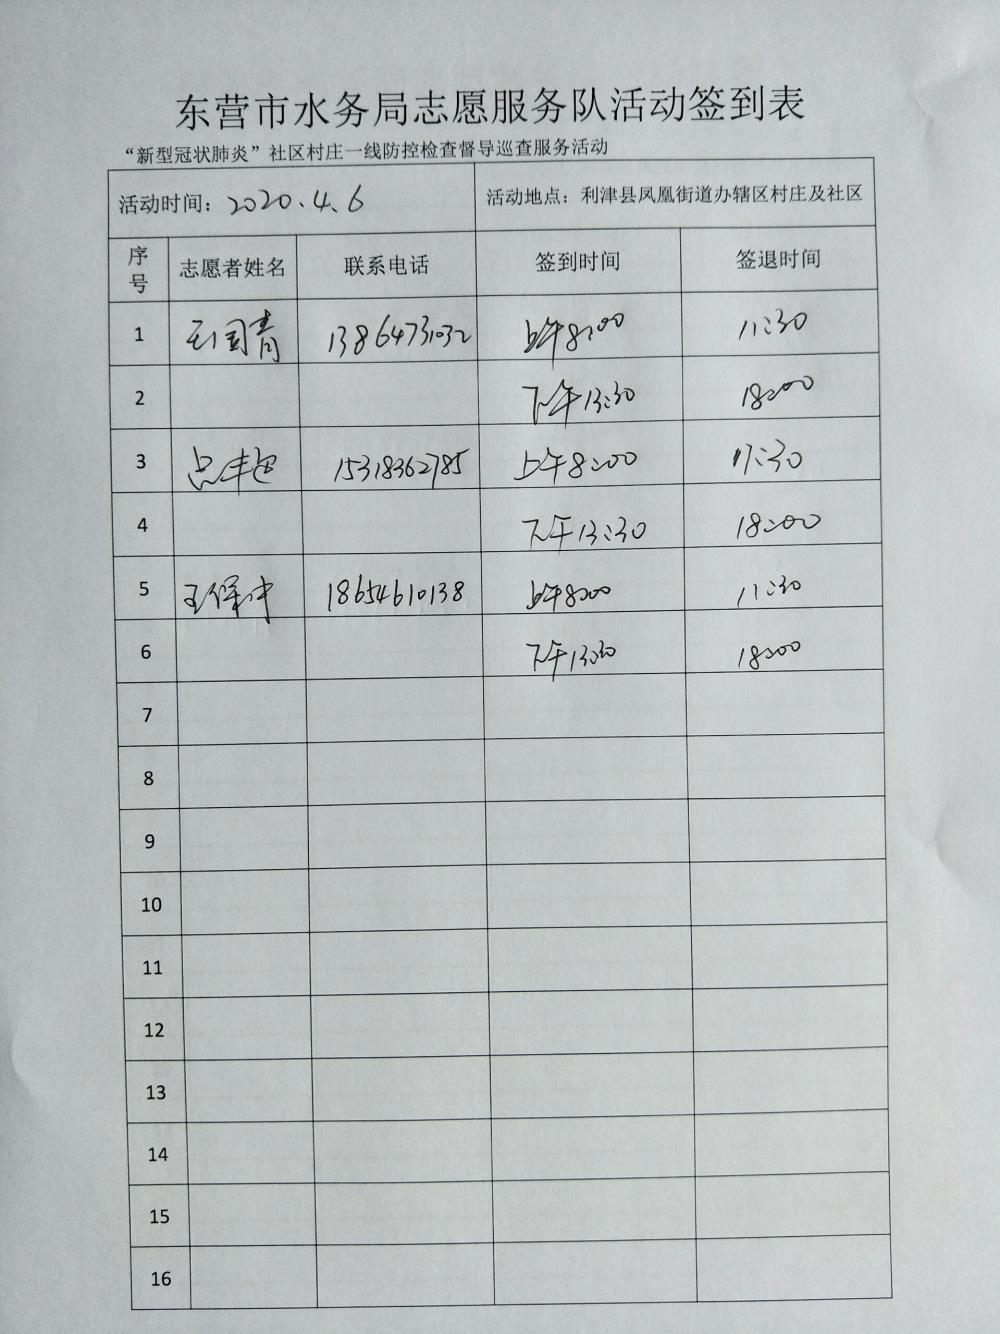 东营市水务局志愿服务队活动签到表
“新型冠状肺炎”社区村庄一线防控检查督导巡查服务活动
活动时间：2020.4.6 活动地点：利津县凤凰街道办辖区村庄及社区
序号 志愿者姓名 联系电话 签到时间 签退时间
1 王国青 13864731032 上午8:00 11:30
2 下午13:30 18:00
3 15318362785 上午8:00 11:30
4 下午13:30 18:00
5 王保中 18654610138 上午8:00 11:30
6 下午13:30 18:00
7
8
9
10
11
12
13
14
15
16